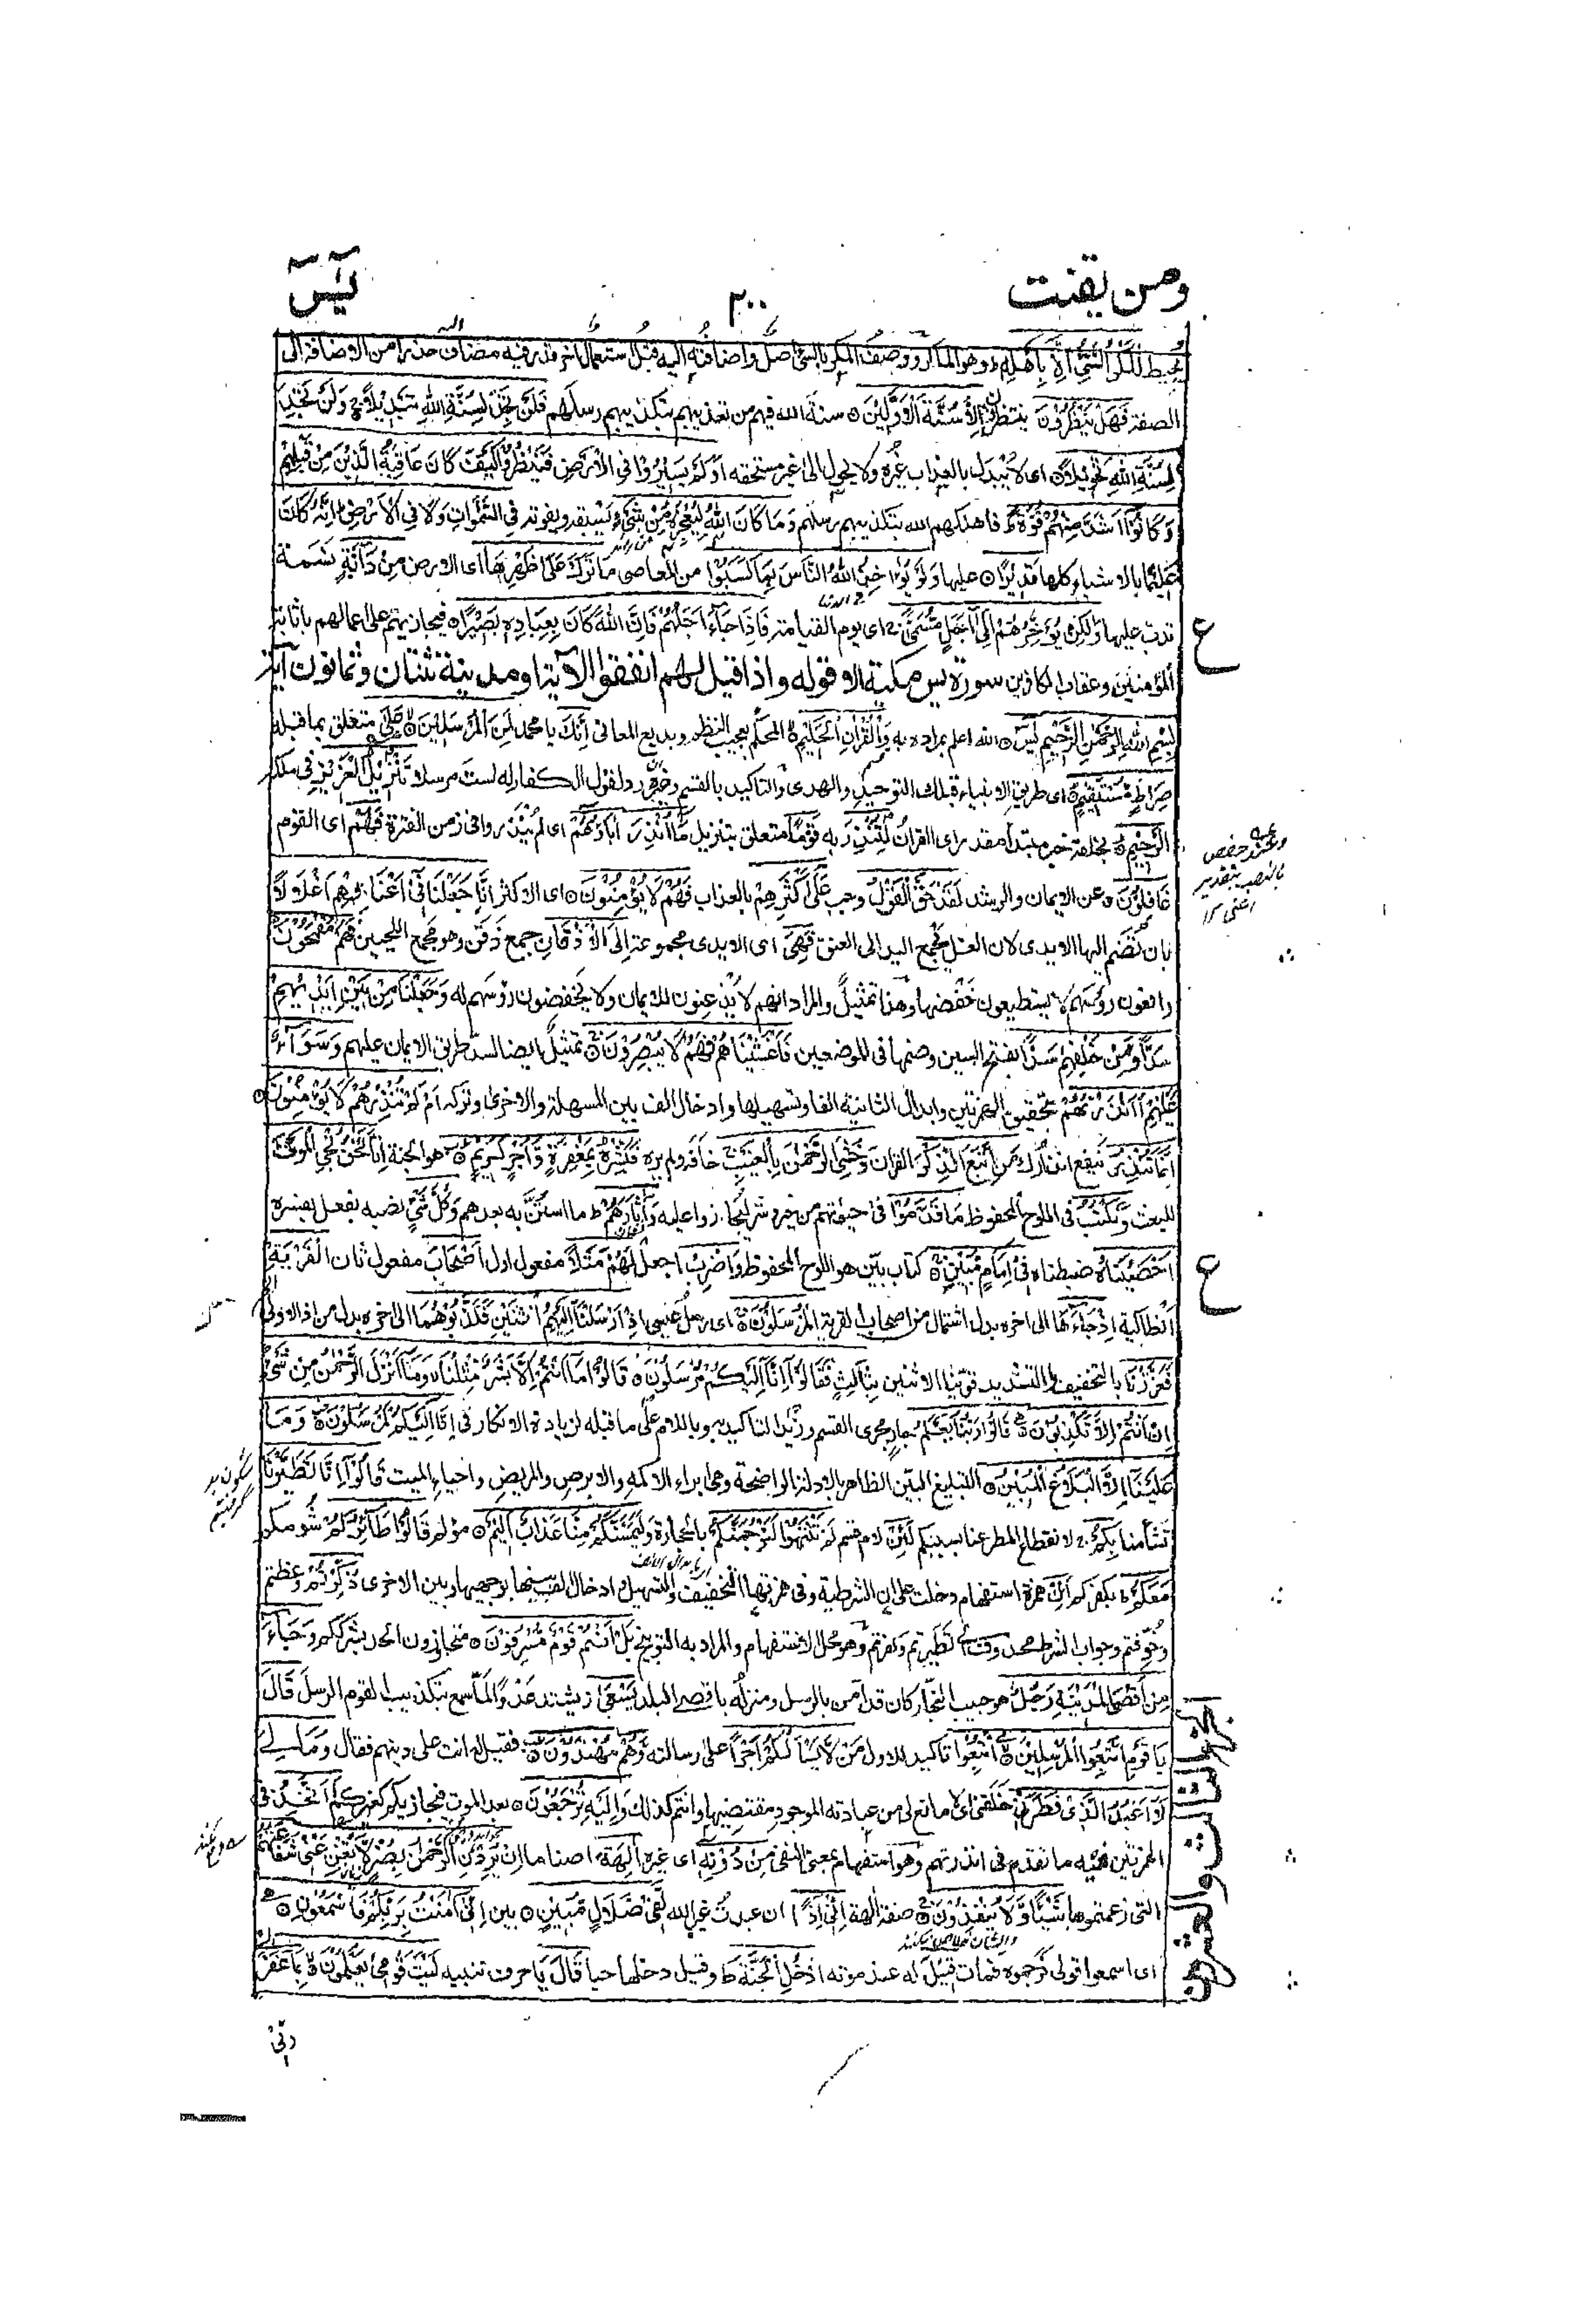 ومن یقنت
۲۰۰
یٰسٓ
یُحِیْطُ الْمَكْرُ السَّیِّئُ اِلَّا بِاَهْلِهٖ وهو الماكر ووصف المكر بالسیئ اصل واضافته الیه قبل استعمال اخر قدر فیه مضاف حذرا من الاضافة الى
الصفة فَهَلْ یَنْظُرُوْنَ ینتظرون اِلَّا سُنَّةَ الْاَوَّلِیْنَ سنة الله فیهم من تعذیبهم بتكذیبهم رسلهم فَلَنْ تَجِدَ لِسُنَّةِ اللهِ تَبْدِیْلًا وَلَنْ تَجِدَ
لِسُنَّةِ اللهِ تَحْوِیْلًا اى لا یبدل بالعذاب غیره ولا یحول الى غیر مستحقه اَوَلَمْ یَسِیْرُوْا فِی الْاَرْضِ فَیَنْظُرُوْا كَیْفَ كَانَ عَاقِبَةُ الَّذِیْنَ مِنْ قَبْلِهِمْ
وَكَانُوْٓا اَشَدَّ مِنْهُمْ قُوَّةً فاهلكهم الله بتكذیبهم رسلهم وَمَا كَانَ اللهُ لِیُعْجِزَهٗ مِنْ شَیْءٍ یسبقه ویفوته فِی السَّمٰوٰتِ وَلَا فِی الْاَرْضِ اِنَّهٗ كَانَ
عَلِیْمًا بالاشیاء كلها قَدِیْرًا علیها وَلَوْ یُؤَاخِذُ اللهُ النَّاسَ بِمَا كَسَبُوْا من المعاصى مَا تَرَكَ عَلٰى ظَهْرِهَا اى الارض مِنْ دَآبَّةٍ نسمة
تدب علیها وَلٰكِنْ یُؤَخِّرُهُمْ اِلٰٓى اَجَلٍ مُّسَمًّى اى یوم القیامة فَاِذَا جَآءَ اَجَلُهُمْ فَاِنَّ اللهَ كَانَ بِعِبَادِهٖ بَصِیْرًا فیجازیهم على اعمالهم باثابة
المؤمنین وعقاب الكافرین سورة یس مكیة الا قوله واذا قیل لهم انفقوا الآیة او مدنیة ثنتان وثمانون آیة
بِسْمِ اللهِ الرَّحْمٰنِ الرَّحِیْمِ یٰسٓ الله اعلم بمراده به وَالْقُرْاٰنِ الْحَكِیْمِ المحكم بعجیب النظم وبدیع المعانى اِنَّكَ یا محمد لَمِنَ الْمُرْسَلِیْنَ عَلٰى متعلق بما قبله
صِرَاطٍ مُّسْتَقِیْمٍ اى طریق الانبیاء قبلك التوحید والهدى والتاكید بالقسم وغیره رد لقول الكفار له لست مرسلا تَنْزِیْلُ الْعَزِیْزِ فى ملكه
الرَّحِیْمِ بخلقه خبر مبتدأ مقدر اى القرآن لِتُنْذِرَ به قَوْمًا متعلق بتنزیل مَّآ اُنْذِرَ اٰبَآؤُهُمْ اى لم ینذروا فى زمن الفترة فَهُمْ اى القوم
غَافِلُوْنَ عن الایمان والرشد لَقَدْ حَقَّ الْقَوْلُ وجب عَلٰٓى اَكْثَرِهِمْ بالعذاب فَهُمْ لَا یُؤْمِنُوْنَ اى الاكثر اِنَّا جَعَلْنَا فِیْٓ اَعْنَاقِهِمْ اَغْلَالًا
بان تضم الیها الایدى لان الغل یجمع الید الى العنق فَهِیَ اى الایدى مجموعة اِلَى الْاَذْقَانِ جمع ذقن وهو مجمع اللحیین فَهُمْ مُّقْمَحُوْنَ
رافعون رؤسهم لا یستطیعون خفضها وهذا تمثیل والمراد انهم لا یذعنون للایمان ولا یخفضون رؤسهم له وَجَعَلْنَا مِنْ بَیْنِ اَیْدِیْهِمْ
سَدًّا وَّمِنْ خَلْفِهِمْ سَدًّا بفتح السین وضمها فى الموضعین فَاَغْشَیْنٰهُمْ فَهُمْ لَا یُبْصِرُوْنَ تمثیل ایضا لسد طریق الایمان علیهم وَسَوَآءٌ
عَلَیْهِمْ ءَاَنْذَرْتَهُمْ بتحقیق الهمزتین وابدال الثانیة الفا وتسهیلها وادخال الف بین المسهلة والاخرى وتركه اَمْ لَمْ تُنْذِرْهُمْ لَا یُؤْمِنُوْنَ
اِنَّمَا تُنْذِرُ ینفع انذارك مَنِ اتَّبَعَ الذِّكْرَ القرآن وَخَشِیَ الرَّحْمٰنَ بِالْغَیْبِ خافه ولم یره فَبَشِّرْهُ بِمَغْفِرَةٍ وَّاَجْرٍ كَرِیْمٍ هو الجنة اِنَّا نَحْنُ نُحْیِ الْمَوْتٰى
للبعث وَنَكْتُبُ فى اللوح المحفوظ مَا قَدَّمُوْا فى حیوتهم من خیر وشر لیجازوا علیه وَاٰثَارَهُمْ ما استن به بعدهم وَكُلَّ شَیْءٍ نصبه بفعل یفسره
اَحْصَیْنٰهُ ضبطناه فِیْٓ اِمَامٍ مُّبِیْنٍ كتاب بین هو اللوح المحفوظ وَاضْرِبْ اجعل لَهُمْ مَّثَلًا مفعول اول اَصْحٰبَ مفعول ثان الْقَرْیَةِ
انطاكیة اِذْ جَآءَهَا الى اخره بدل اشتمال من اصحاب القریة الْمُرْسَلُوْنَ اى رسل عیسى اِذْ اَرْسَلْنَآ اِلَیْهِمُ اثْنَیْنِ فَكَذَّبُوْهُمَا الى اخره بدل من اذ الاولى
فَعَزَّزْنَا بالتخفیف والتشدید قوینا الاثنین بِثَالِثٍ فَقَالُوْٓا اِنَّآ اِلَیْكُمْ مُّرْسَلُوْنَ قَالُوْا مَآ اَنْتُمْ اِلَّا بَشَرٌ مِّثْلُنَا وَمَآ اَنْزَلَ الرَّحْمٰنُ مِنْ شَیْءٍ
اِنْ اَنْتُمْ اِلَّا تَكْذِبُوْنَ قَالُوْا رَبُّنَا یَعْلَمُ جار مجرى القسم وزید التاكید به وباللام على ما قبله لزیادة الانكار فى اِنَّآ اِلَیْكُمْ لَمُرْسَلُوْنَ وَمَا
عَلَیْنَآ اِلَّا الْبَلَاغُ الْمُبِیْنُ التبلیغ البین الظاهر بالادلة الواضحة وهى ابراء الاكمه والابرص والمریض واحیاء المیت قَالُوْٓا اِنَّا تَطَیَّرْنَا
تشأمنا بِكُمْ لانقطاع المطر عنا بسببكم لَئِنْ لام قسم لَّمْ تَنْتَهُوْا لَنَرْجُمَنَّكُمْ بالحجارة وَلَیَمَسَّنَّكُمْ مِّنَّا عَذَابٌ اَلِیْمٌ مؤلم قَالُوْا طَآئِرُكُمْ شومكم
مَّعَكُمْ بكفركم اَئِنْ همزة استفهام دخلت على ان الشرطیة وفى همزتها التحقیق والتسهیل وادخال الف بینها بوجهیها وبین الاخرى ذُكِّرْتُمْ وعظتم
وخوفتم وجواب الشرط محذوف اى تطیرتم وكفرتم وهو محل الاستفهام والمراد به التوبیخ بَلْ اَنْتُمْ قَوْمٌ مُّسْرِفُوْنَ متجاوزون الحد بشرككم وَجَآءَ
مِنْ اَقْصَا الْمَدِیْنَةِ رَجُلٌ هو حبیب النجار كان قد آمن بالرسل ومنزله باقصى البلد یَّسْعٰى یشتد عدوا لما سمع بتكذیب القوم الرسل قَالَ
یَا قَوْمِ اتَّبِعُوا الْمُرْسَلِیْنَ اتَّبِعُوْا تاكید للاول مَنْ لَّا یَسْئَلُكُمْ اَجْرًا على رسالته وَّهُمْ مُّهْتَدُوْنَ فقیل له انت على دینهم فقال وَمَا لِیَ
لَآ اَعْبُدُ الَّذِیْ فَطَرَنِیْ خلقنى اى لا مانع لى من عبادته الموجود مقتضیها وانتم كذلك وَاِلَیْهِ تُرْجَعُوْنَ بعد الموت فیجازیكم كغیركم ءَاَتَّخِذُ فى
الهمزتین فیه ما تقدم فى انذرتهم وهو استفهام بمعنى النفى مِنْ دُوْنِهٖٓ اى غیره اٰلِهَةً اصناما اِنْ یُّرِدْنِ الرَّحْمٰنُ بِضُرٍّ لَّا تُغْنِ عَنِّیْ شَفَاعَتُهُمْ
التى زعمتموها شَیْئًا وَّلَا یُنْقِذُوْنَ صفة الهة اِنِّیْٓ اِذًا ان عبدت غیر الله لَّفِیْ ضَلَالٍ مُّبِیْنٍ بین اِنِّیْٓ اٰمَنْتُ بِرَبِّكُمْ فَاسْمَعُوْنِ
اى اسمعوا قولى فرجموه فمات قِیْلَ له عند موته ادْخُلِ الْجَنَّةَ وقیل دخلها حیا قَالَ یَا حرف تنبیه لَیْتَ قَوْمِیْ یَعْلَمُوْنَ بِمَا غَفَرَ لِیْ
ربى
ع
ع
حفص
بالنصب بتقدیر
اعنى
الجزء الثالث والعشرون